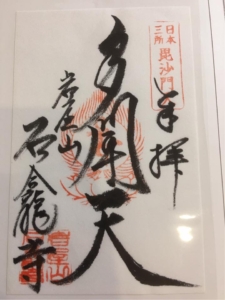 奉拝
日本三所 毘沙門
多聞天
岩屋山
石龕寺